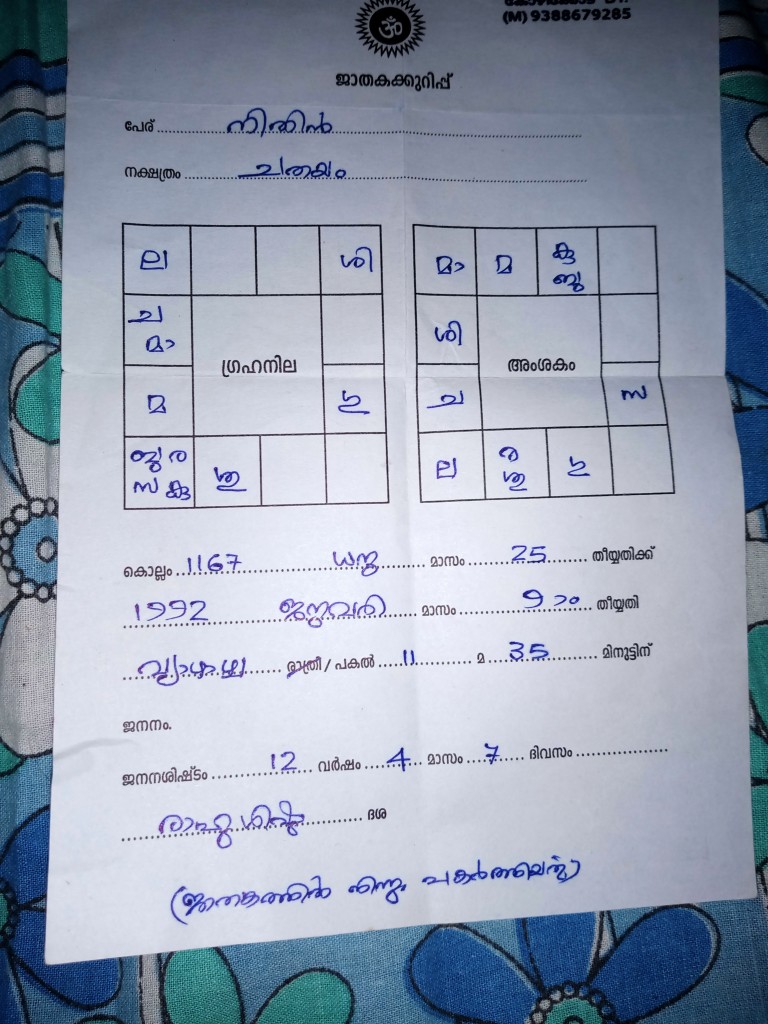 ॐ
(M) 9388679285
ജാതകക്കുറിപ്പ്
പേര് നിതിൻ
നക്ഷത്രം ചതയം
ല ശി മാ മ കു ബു
ച മാ ശി
ഗ്രഹനില അംശകം
മ ഗു ച സ
ബു ര സ കു ശു ല ര ശു ഗു
കൊല്ലം 1167 ധനു മാസം 25 തീയ്യതിക്ക്
1992 ജനുവരി മാസം 9 ാം തീയ്യതി
വ്യാഴാഴ്ച രാത്രീ / പകൽ 11 മ 35 മിനുട്ടിന്
ജനനം.
ജനനശിഷ്ടം 12 വർഷം 4 മാസം 7 ദിവസം
രാഹുശിഷ്ട ദശ
(ജാതകത്തിൽ നിന്നും പകർത്തിയത്)